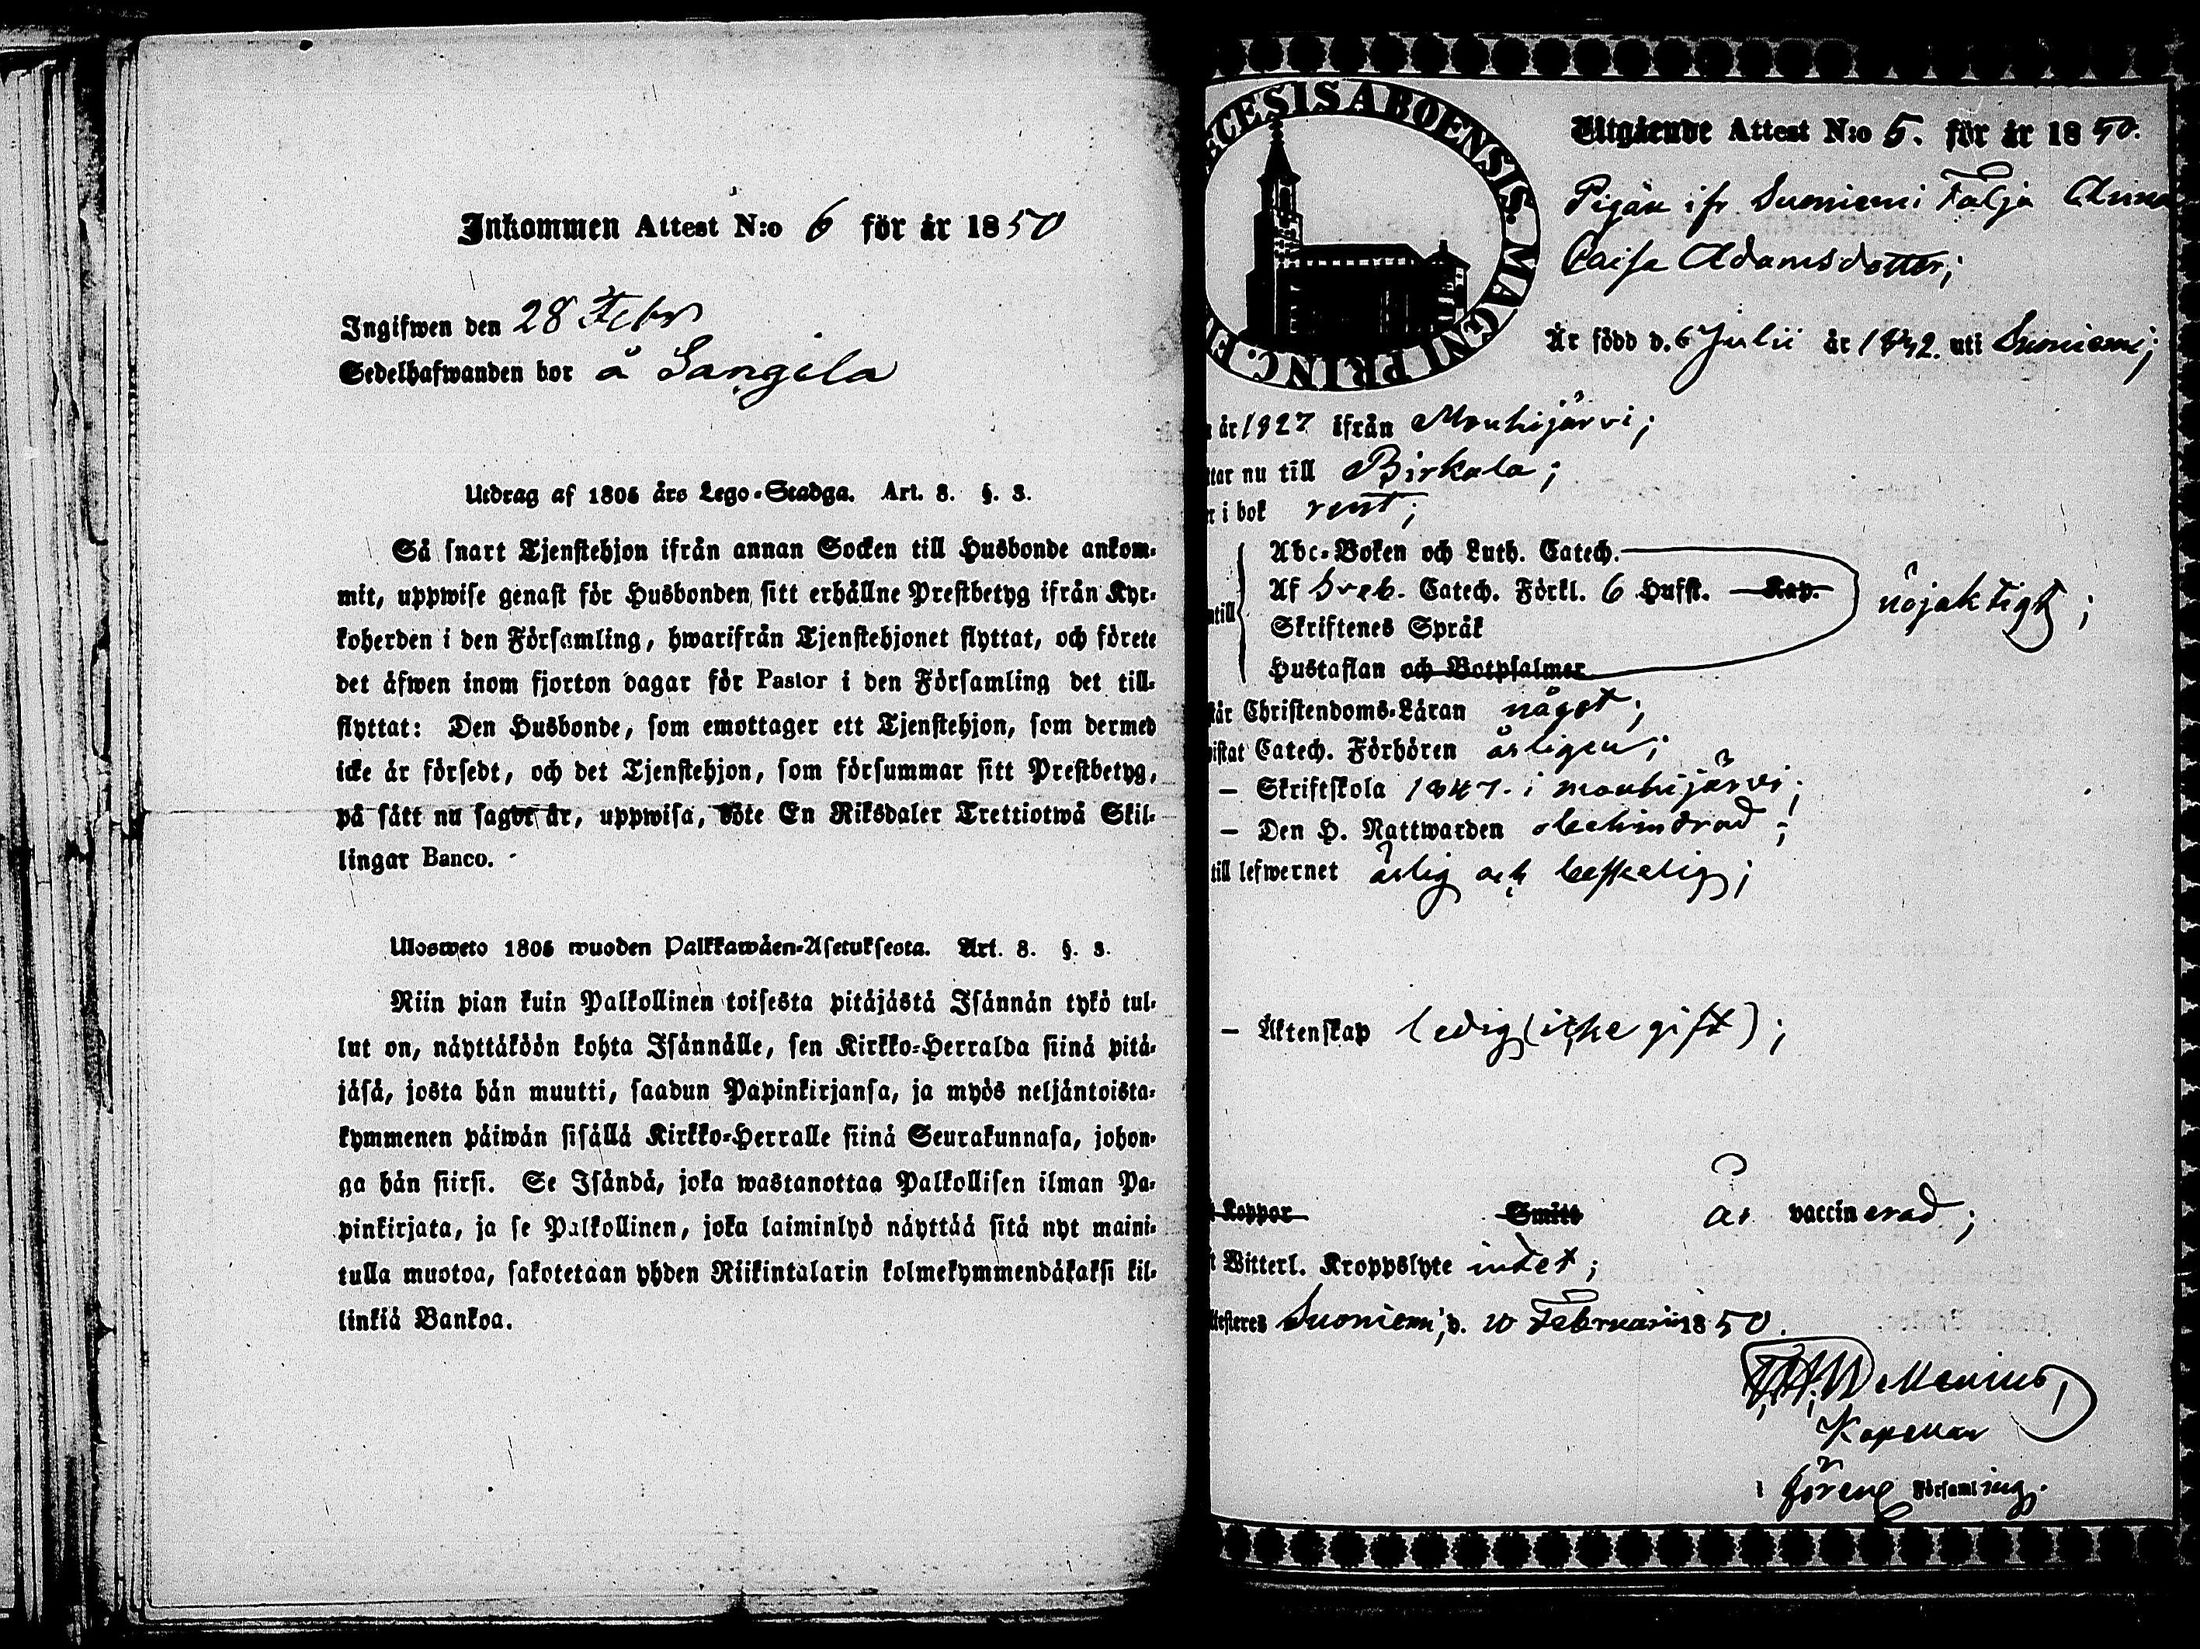 Inkommen Attest N:o 6 för år 1850
Ingifwen den 28 Febr
Sedelhafwanden bor å Sangila
Utdrag af 1805 års Lego-Stadga. Art. 8. §. 3.
Så snart Tjenstehjon ifrån annan Socken till Husbonde ankom-
mit, uppwise genast för Husbonden sitt erhållne Prestbetyg ifrån Kyr-
koherden i den Församling, hwarifrån Tjenstehjonet flyttat, och förete
det äfwen inom fjorton dagar för Pastor i den Församling det till-
flyttat: Den Husbonde, som emottager ett Tjenstehjon, som dermed
icke är försedt, och det Tjenstehjon, som försummar sitt Prestbetyg,
på sätt nu sagdt är, uppwisa, böte En Riksdaler Trettiotwå Skil-
lingar Banco.
Ulosweto 1805 wuoden Palkkawäen-Asetuksesta. Art. 8. §. 3.
Niin pian kuin Palkollinen toisesta pitäjästä Isännän tykö tul-
lut on, näyttäköön kohta Isännälle, sen Kirkko-Herralda siinä pitä-
jäsä, josta hän muutti, saadun Papinkirjansa, ja myös neljäntoista-
kymmenen päiwän sisällä Kirkko-Herralle siinä Seurakunnasa, johon-
ga hän siirsi. Se Isändä, joka wastanottaa Palkollisen ilman Pa-
pinkirjata, ja se Palkollinen, joka laiminlyö näyttää sitä nyt maini-
tulla muotoa, sakotetaan yhden Riikintalarin kolmekymmendäkaksi kil-
linkiä Bankoa.
CESIS ABOENSIS. MAGNI PRINC. F
Utgående Attest N:o 5. för år 1850.
Pigan ifr Suoniemi Falja Anna
Caisa Adamsdotter;
Är född d. 6 Julii år 1832. uti Suoniemi;
år 1827 ifrån Mouhijärvi;
ttar nu till Birkala;
r i bok rent;
Abc-Boken och Luth. Catech.
Af Sveb. Catech. Förkl. 6 Hufst. Kap.
ntill nöjaktigt;
Skriftenes Språk
Hustaflan och Botpsalmer
tår Christendoms-Läran något;
istat Catech. Förhören årligen;
— Skriftskola 1847. i Mouhijärvi;
— Den H. Nattwarden obehindrad;
till lefwernet ärlig och beskedlig;
— Äktenskap ledig (icke gift);
Koppor Smitt är vaccinerad;
t Witterl. Kroppslyte intet;
ttesteres Suoniemi, d. 10 Februarii 1850.
Wellenius
Kapellan
i förene Församling.